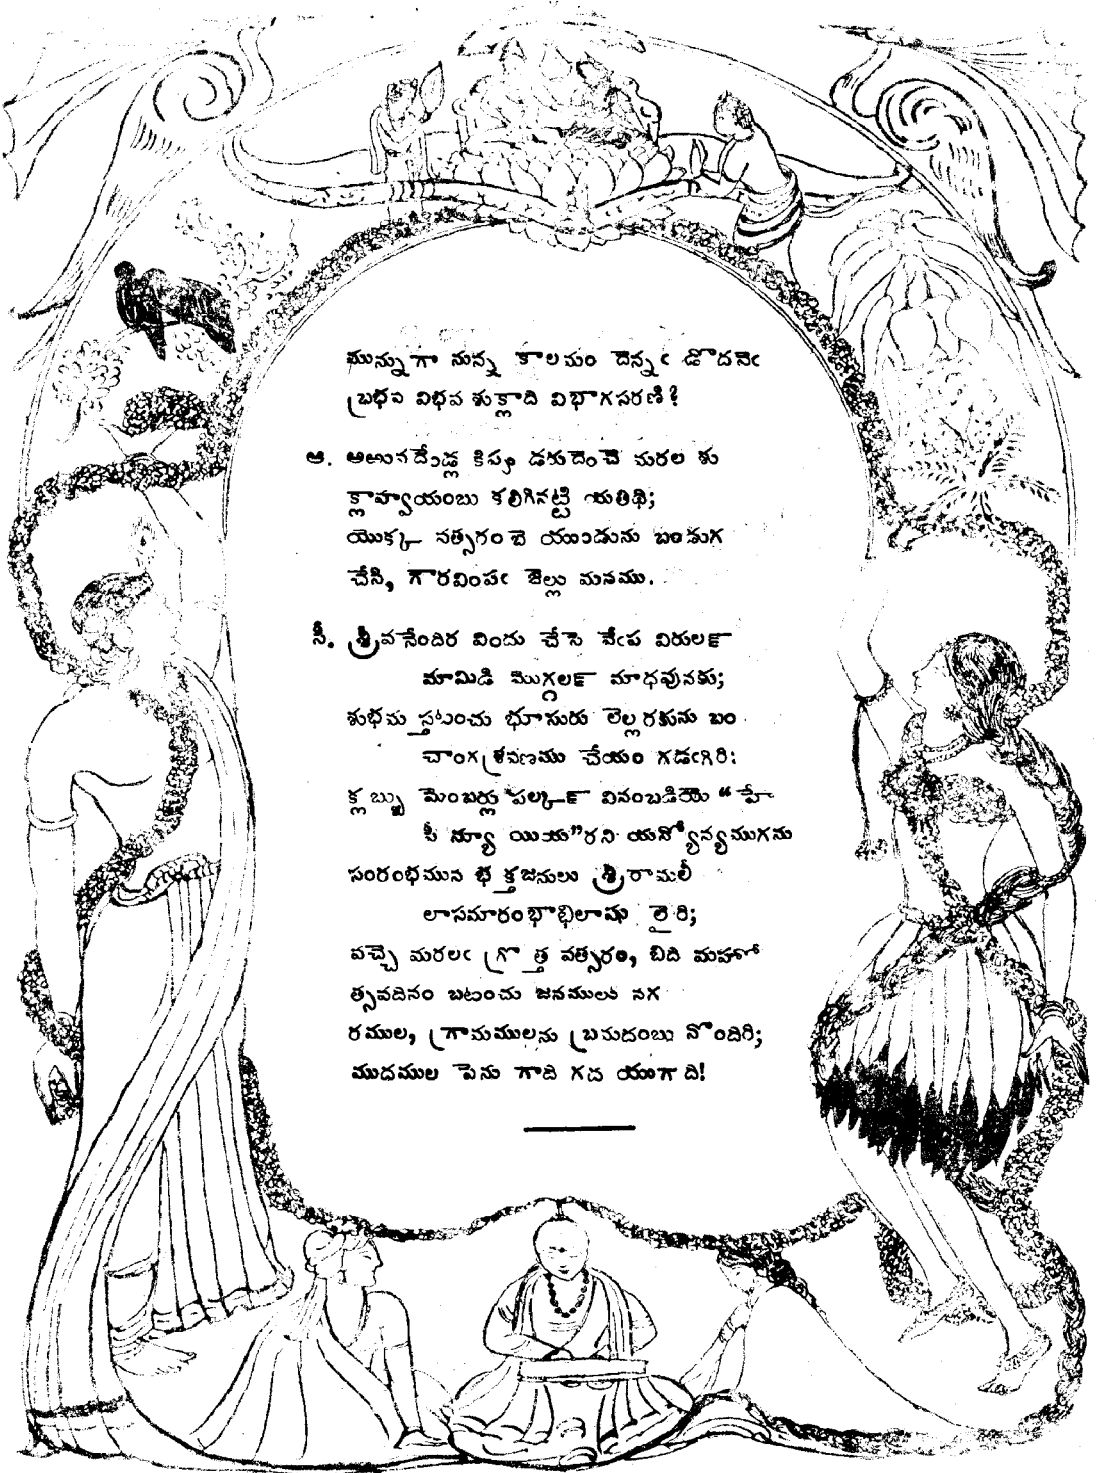 మున్నుగా నున్న కాలమం దెన్నఁ డొదవెఁ
బ్రభవ విభవ శుక్లాది విభాగసరణి?
ఆ. అఱువదేండ్ల కిప్పు డరుదెంచె మరల శు
క్లాహ్వయంబు కలిగినట్టి యతిథి;
యొక్క వత్సరంబె యుండును బండుగ
చేసి, గారవింపఁ జెల్లు మనము.
సీ. శ్రీవనేందిర విందు చేసె వేఁప విరులఁన్
మామిడి మొగ్గలన్ మాధవునకు;
శుభమ స్తటంచు భూసురు లెల్లరకును బం
చాంగశ్రవణము చేయం గడఁగిరి;
క్లబ్బు మెంబర్లు పల్కన్ వినంబడియె "హే
పీ న్యూ యియ"రని యన్యోన్యముగను
సంరంభమున భక్తజనులు శ్రీరామలీ
లాసమారంభాభిలాషు లైరి;
వచ్చె మరలఁ గ్రొత్త వత్సరం, బిది మహో
త్సవదినం బటంచు జనములు నగ
రముల, గ్రామములను బ్రమదంబు నొందిరి;
ముదముల పెను గాది గద యుగాది!